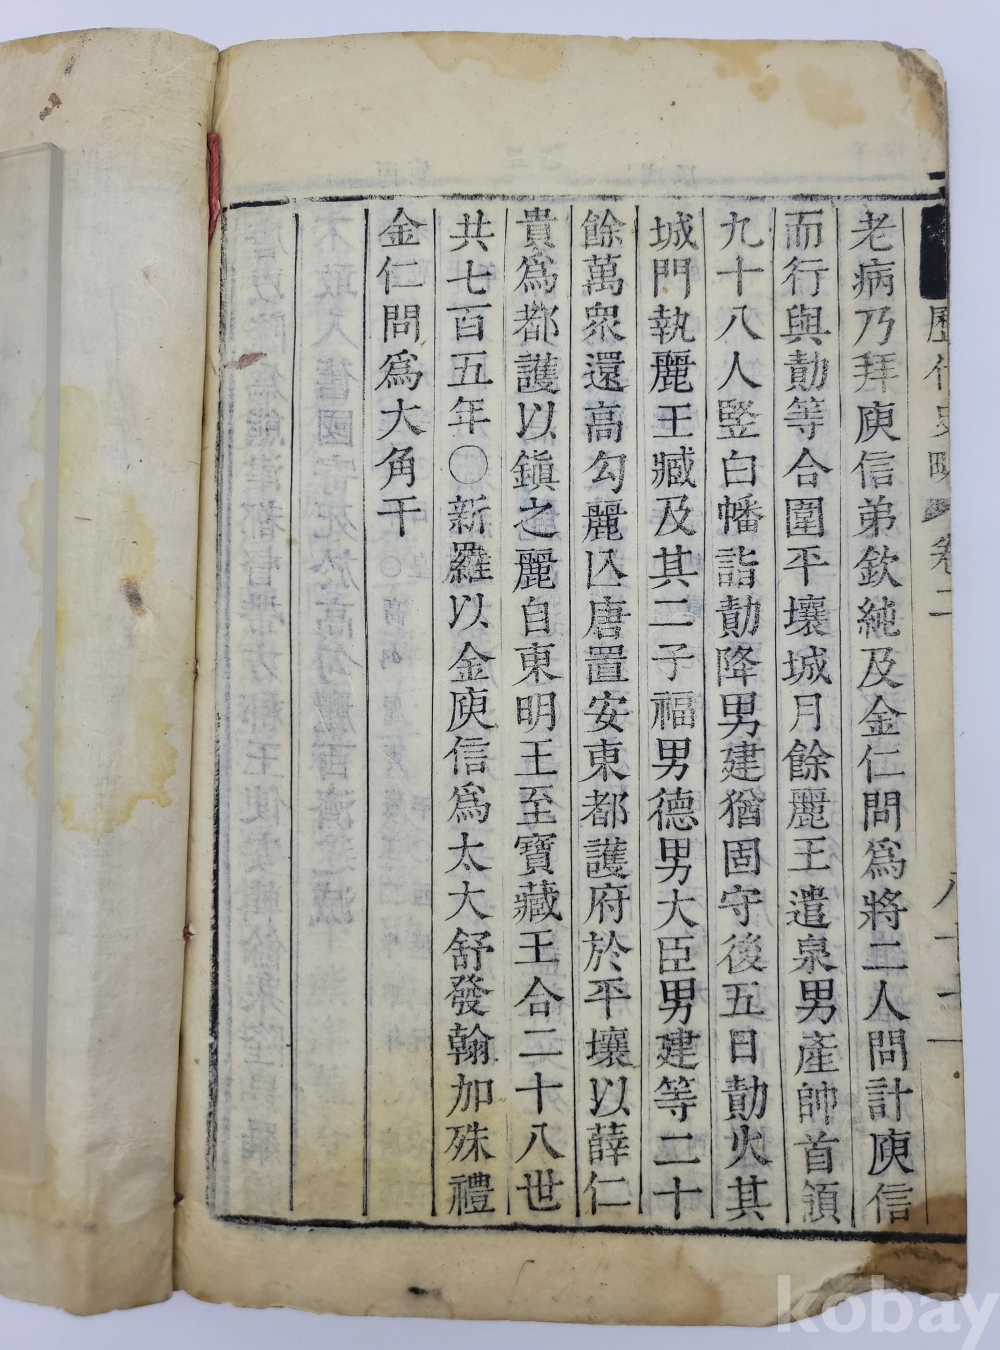 歷代史略 卷二 八十一
老病乃拜庾信弟欽純及金仁問爲將二人問計庾信
而行與勣等合圍平壤城月餘麗王遣泉男產帥首領
九十八人竪白幡詣勣降男建猶固守後五日勣火其
城門執麗王臧及其二子福男德男大臣男建等二十
餘萬衆還高勾麗亾唐置安東都護府於平壤以薛仁
貴爲都護以鎭之麗自東明王至寶藏王合二十八世
共七百五年〇新羅以金庾信爲太大舒發翰加殊禮
金仁問爲大角干
kobay